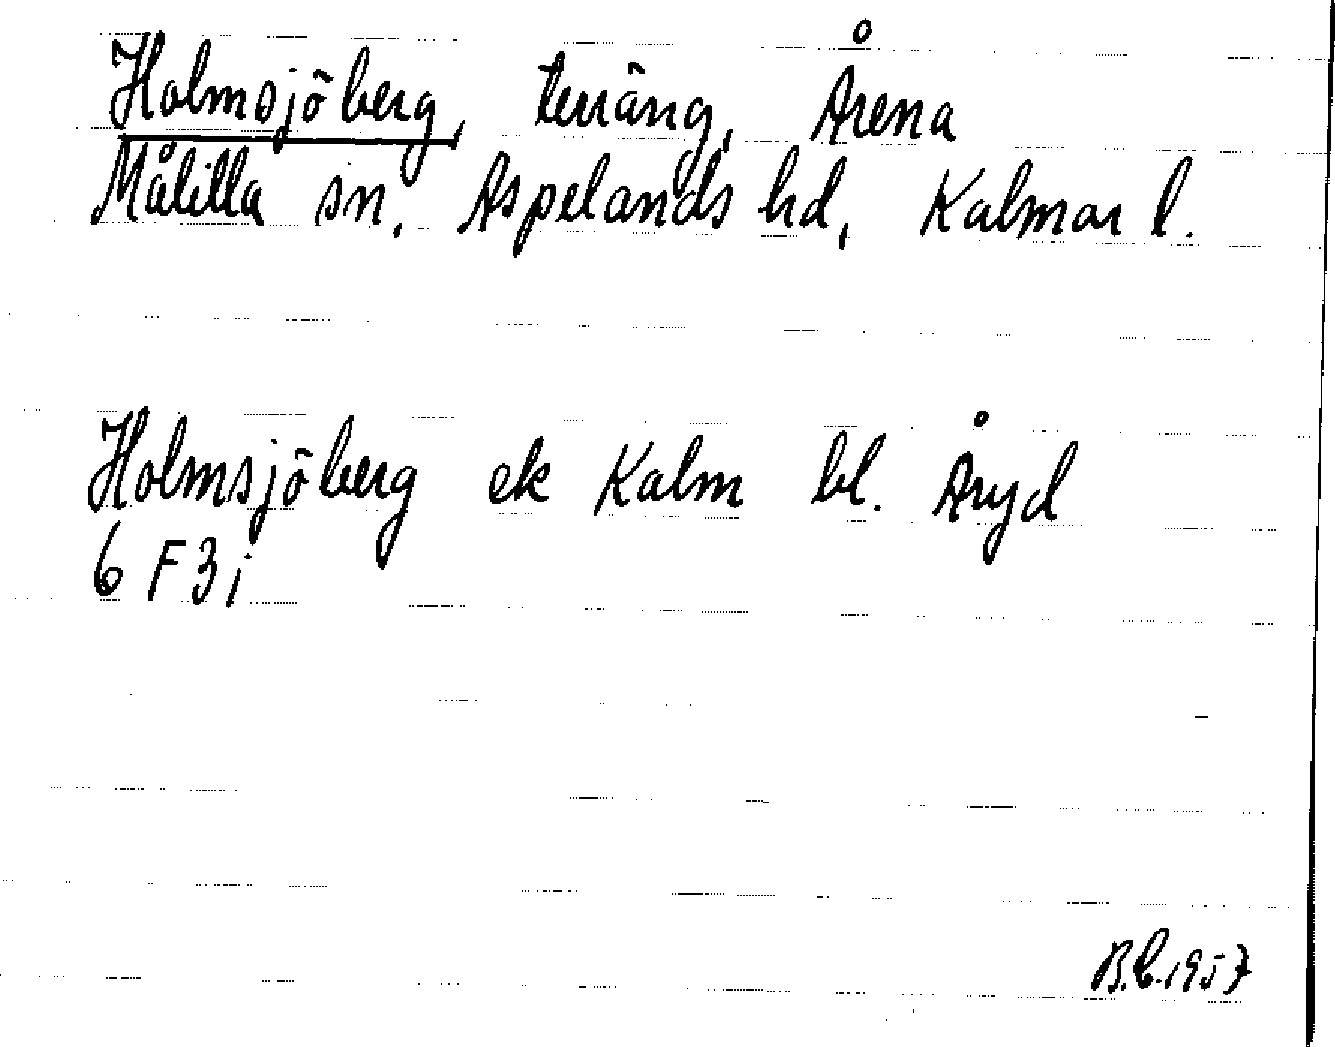 Holmsjöberg, terräng, Årena
Målilla sn, Aspelands hd, Kalmar l.
Holmsjöberg ek Kalm bl. Åryd
6 F 3 i
B.L. 1957